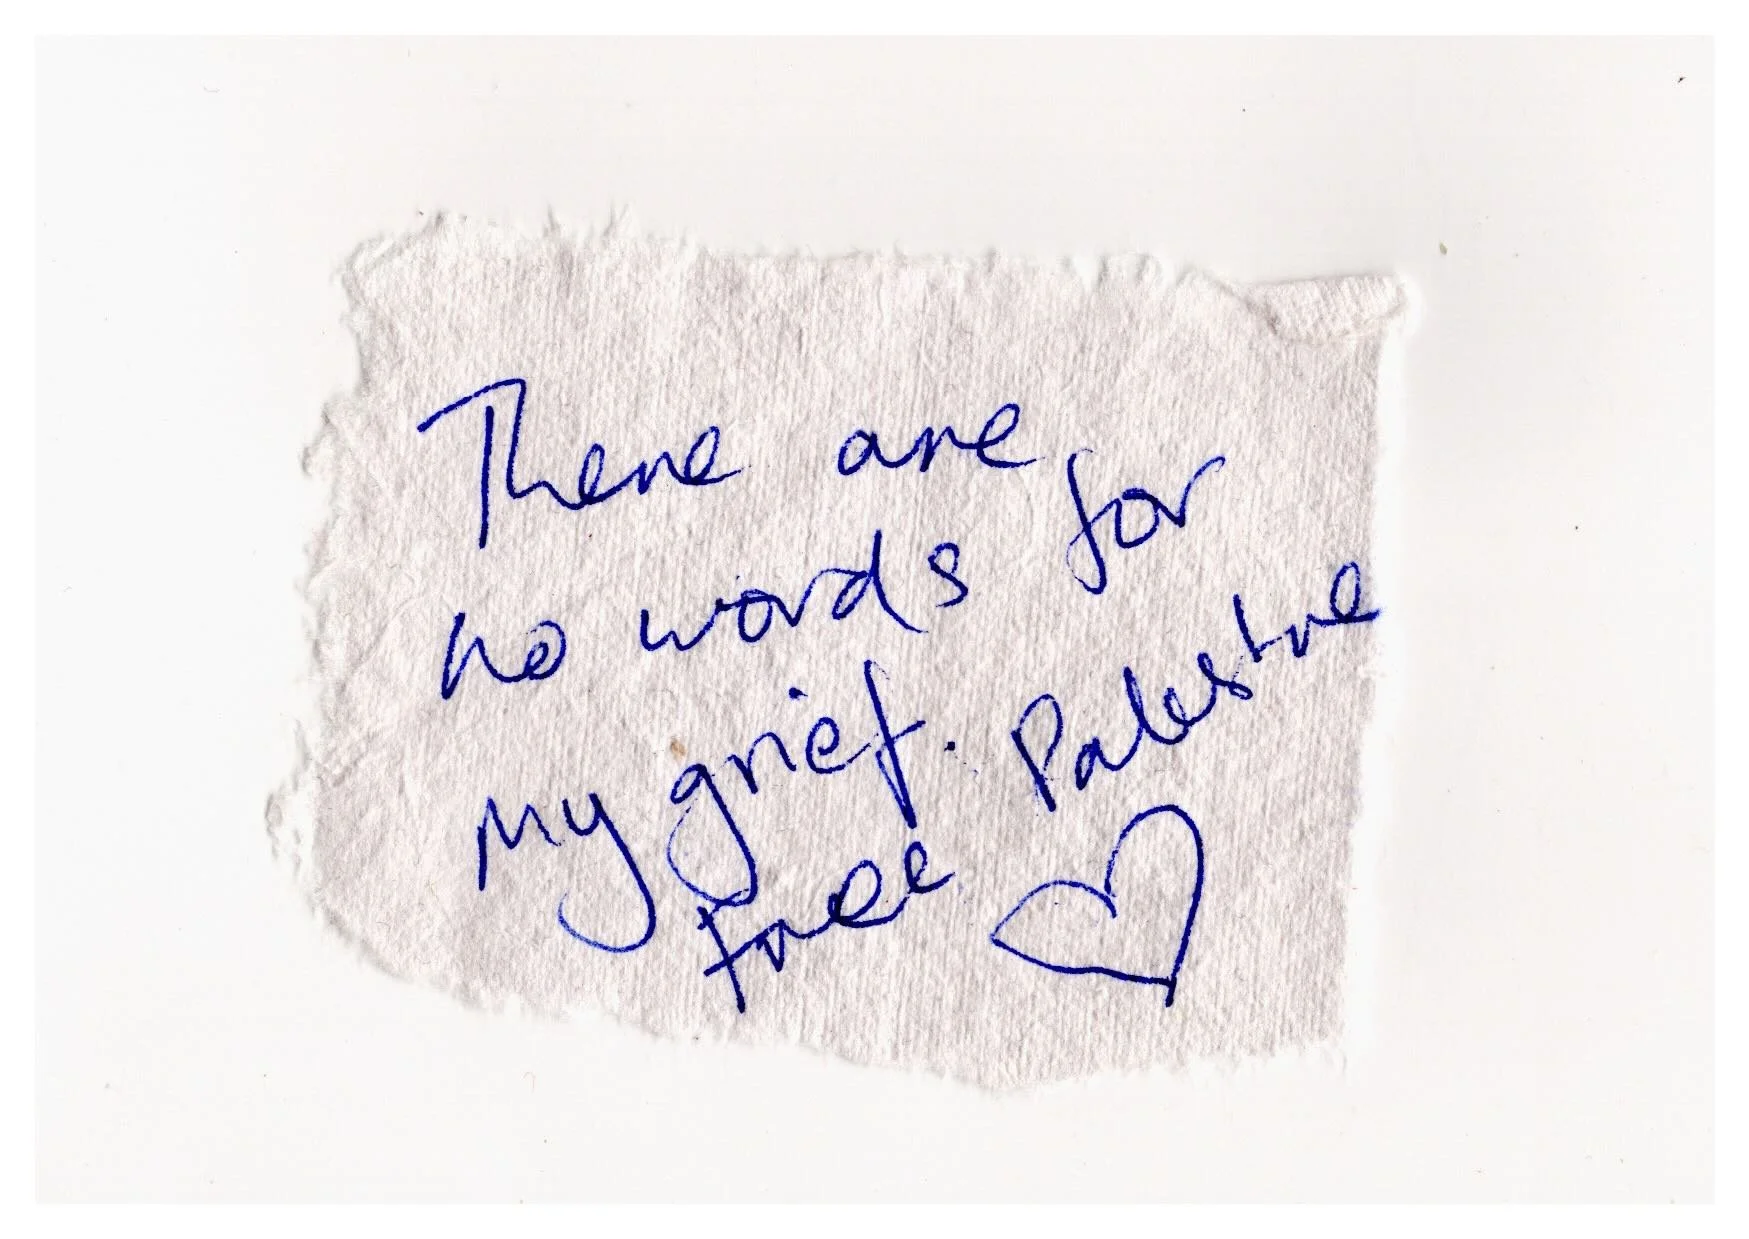 There are
no words for
my grief.
free Palestine